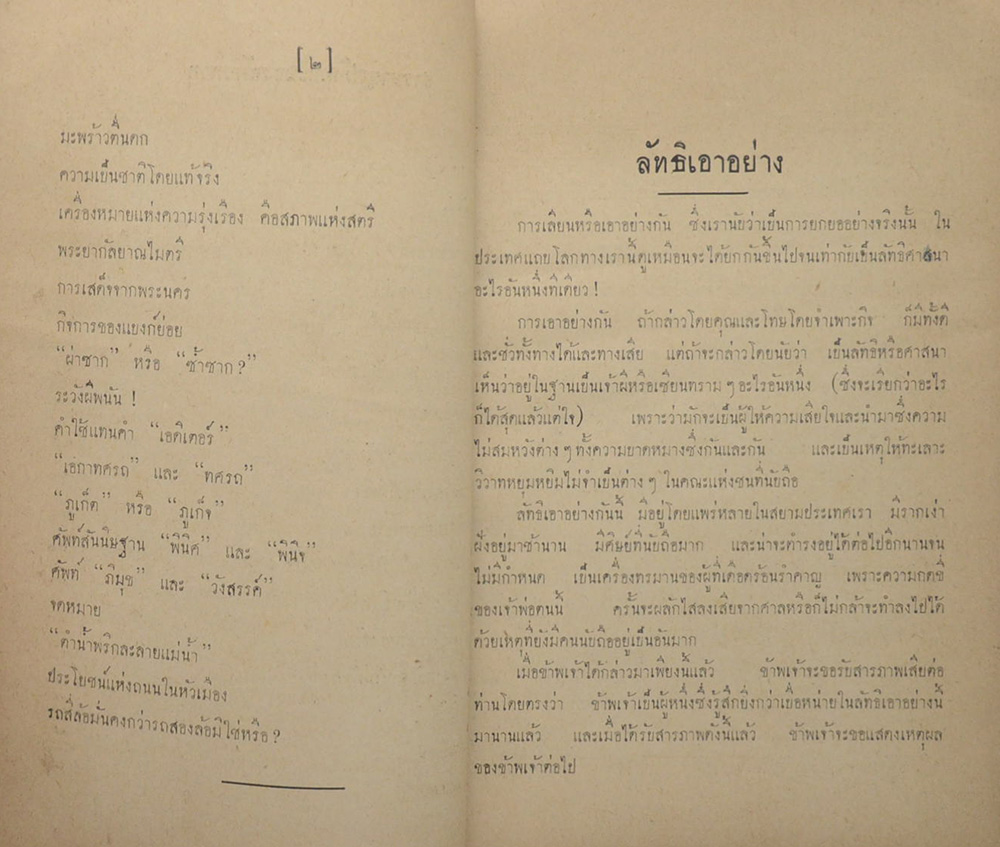 [๒]
มะพร้าวตื่นดก
ความเป็นชาติโดยแท้จริง
เครื่องหมายแห่งความรุ่งเรือง คือสภาพแห่งสตรี
พระยากัลยาณไมตรี
การเสด็จจากพระนคร
กิจการของแบงก์ย่อย
“ผ่าซาก” หรือ “ซ้ำซาก?”
ระวังผีพนัน !
คำใช้แทนคำ “เอดิเตอร์”
“เอกาทศรถ” และ “ทศรถ”
“ภูเก็ต” หรือ “ภูเก็จ”
ศัพท์สันนิษฐาน “พินิศ” และ “พินิจ”
ศัพท์ “ภิมุข” และ “วังสรรค์”
จดหมาย
“ตำน้ำพริกละลายแม่น้ำ”
ประโยชน์แห่งถนนในหัวเมือง
รถสี่ล้อมั่นคงกว่ารถสองล้อมิใช่หรือ ?
ลัทธิเอาอย่าง
การเลียนหรือเอาอย่างกัน ซึ่งเรานับว่าเป็นการยกยออย่างจริงนั้น ใน
ประเทศแถบโลกทางเรานี้ดูเหมือนจะได้ยกกันขึ้นไปจนเท่ากับเป็นลัทธิศาสนา
อะไรอันหนึ่งทีเดียว !
การเอาอย่างกัน ถ้ากล่าวโดยคุณและโทษโดยจำเพาะกิจ ก็มีทั้งดี
และชั่วทั้งทางได้และทางเสีย แต่ถ้าจะกล่าวโดยนับว่า เป็นลัทธิหรือศาสนา
เห็นว่าอยู่ในฐานเป็นเจ้าผีหรือเซียนทราม ๆ อะไรอันหนึ่ง (ซึ่งจะเรียกว่าอะไร
ก็ได้สุดแล้วแต่ใจ) เพราะว่ามักจะเป็นผู้ให้ความเสียใจและนำมาซึ่งความ
ไม่สมหวังต่าง ๆ ทั้งความบาดหมางซึ่งกันและกัน และเป็นเหตุให้ทะเลาะ
วิวาทหยุมหยิมไม่จำเป็นต่าง ๆ ในคณะแห่งชนที่นับถือ
ลัทธิเอาอย่างกันนี้ มีอยู่โดยแพร่หลายในสยามประเทศเรา มีรากเง่า
ฝังอยู่มาช้านาน มีศิษย์ที่นับถือมาก และน่าจะดำรงอยู่ได้ต่อไปอีกนานจน
ไม่มีกำหนด เป็นเครื่องทรมานของผู้ที่เดือดร้อนรำคาญ เพราะความกดขี่
ของเจ้าพ่อตนนี้ ครั้นจะผลักไสลงเสียจากศาลหรือก็ไม่กล้าจะทำลงไปได้
ด้วยเหตุที่ยังมีคนนับถืออยู่เป็นอันมาก
เมื่อข้าพเจ้าได้กล่าวมาเพียงนี้แล้ว ข้าพเจ้าจะขอรับสารภาพเสียต่อ
ท่านโดยตรงว่า ข้าพเจ้าเป็นผู้หนึ่งซึ่งรู้สึกยิ่งกว่าเบื่อหน่ายในลัทธิเอาอย่างนี้
มานานแล้ว และเมื่อได้รับสารภาพดังนี้แล้ว ข้าพเจ้าจะขอแสดงเหตุผล
ของข้าพเจ้าต่อไป